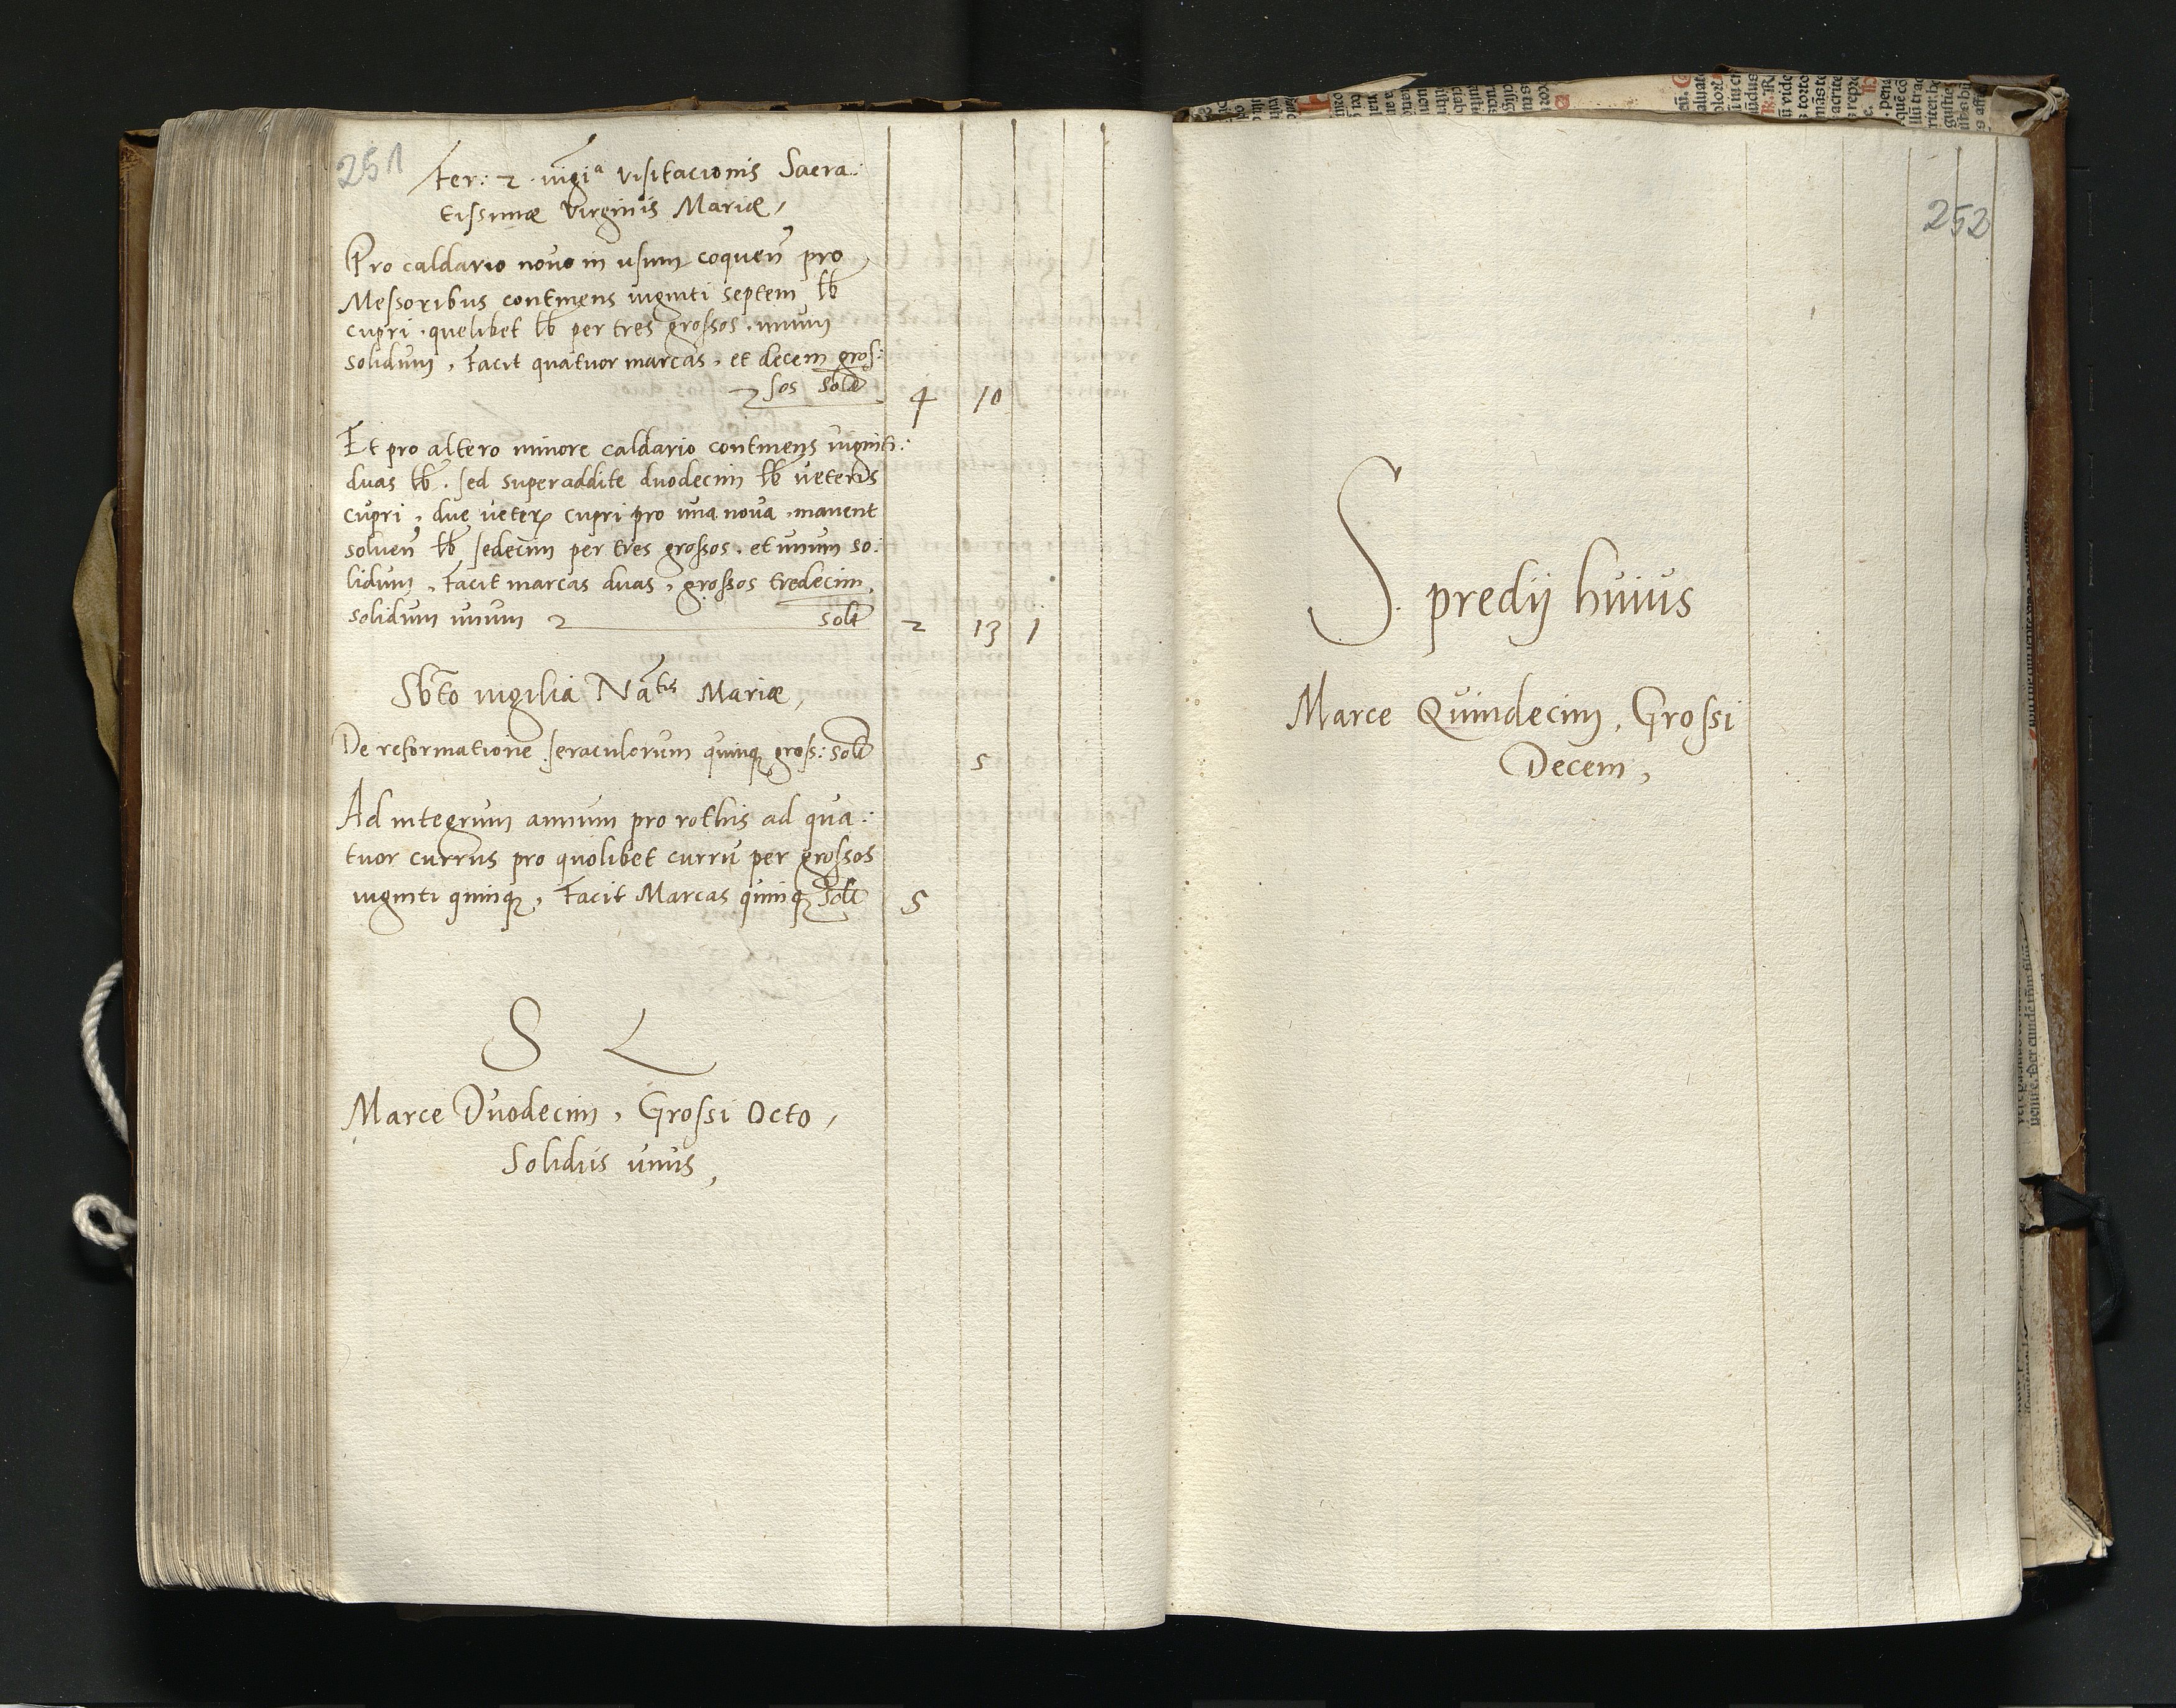 251
fer: 2 · vigiª visitacionis Sacra:
tissimæ Virginis Mariæ,
Pro caldario novo in usum coquen̄ pro
Messoribus continens viginti septem lb
cupri · quelibet lb per tres grossos · unum
solidum, Facit quatuor marcas, et decem gros:
sos solt 4 10
Et pro altero minore caldario continens viginti:
duas lb · sed superaddite duodecim lb veteris
cupri, due veter cupri pro una nova · manent
solven̄ lb sedecim per tres grossos · et unum so:
lidum, Facit marcas duas, grossos tredecim,
solidum unum solt 2 13 1
Sbto vigilia Natis Mariæ,
De reformatione seraculorum quinq gross: solt 5
Ad integrum annum pro rothis ad qua:
tuor currus pro quolibet curru per grossos
viginti quinq, Facit Marcas quinq solt 5
S L
Marce Duodecim, Grossi Octo,
Solidus unus,
252
S. predij huius
Marce Quindecim, Grossi
Decem,